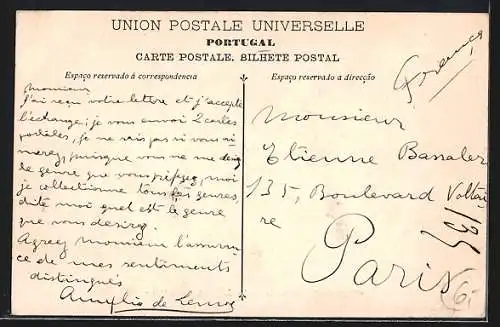 UNION POSTALE UNIVERSELLE
PORTUGAL
CARTE POSTALE. BILHETE POSTAL
Espaço reservado á correspondencia
Espaço reservado a direcção
Monsieur
J'ai reçu votre lettre et j'accepte
l'échange; je vous envoi 2 cartes
postales, je ne sais pas si vous ai-
merez, puisque vous ne me
le genre que vous préférez, moi
je collectionne tous les genres,
dite moi quel est le genre
que vous desirez.
Agreez monsieur l'assuran-
ce de mes sentiments
distingués
Amelia de Lemos
França
Monsieur
Etienne
135, Boulevard Voltai
re
Paris